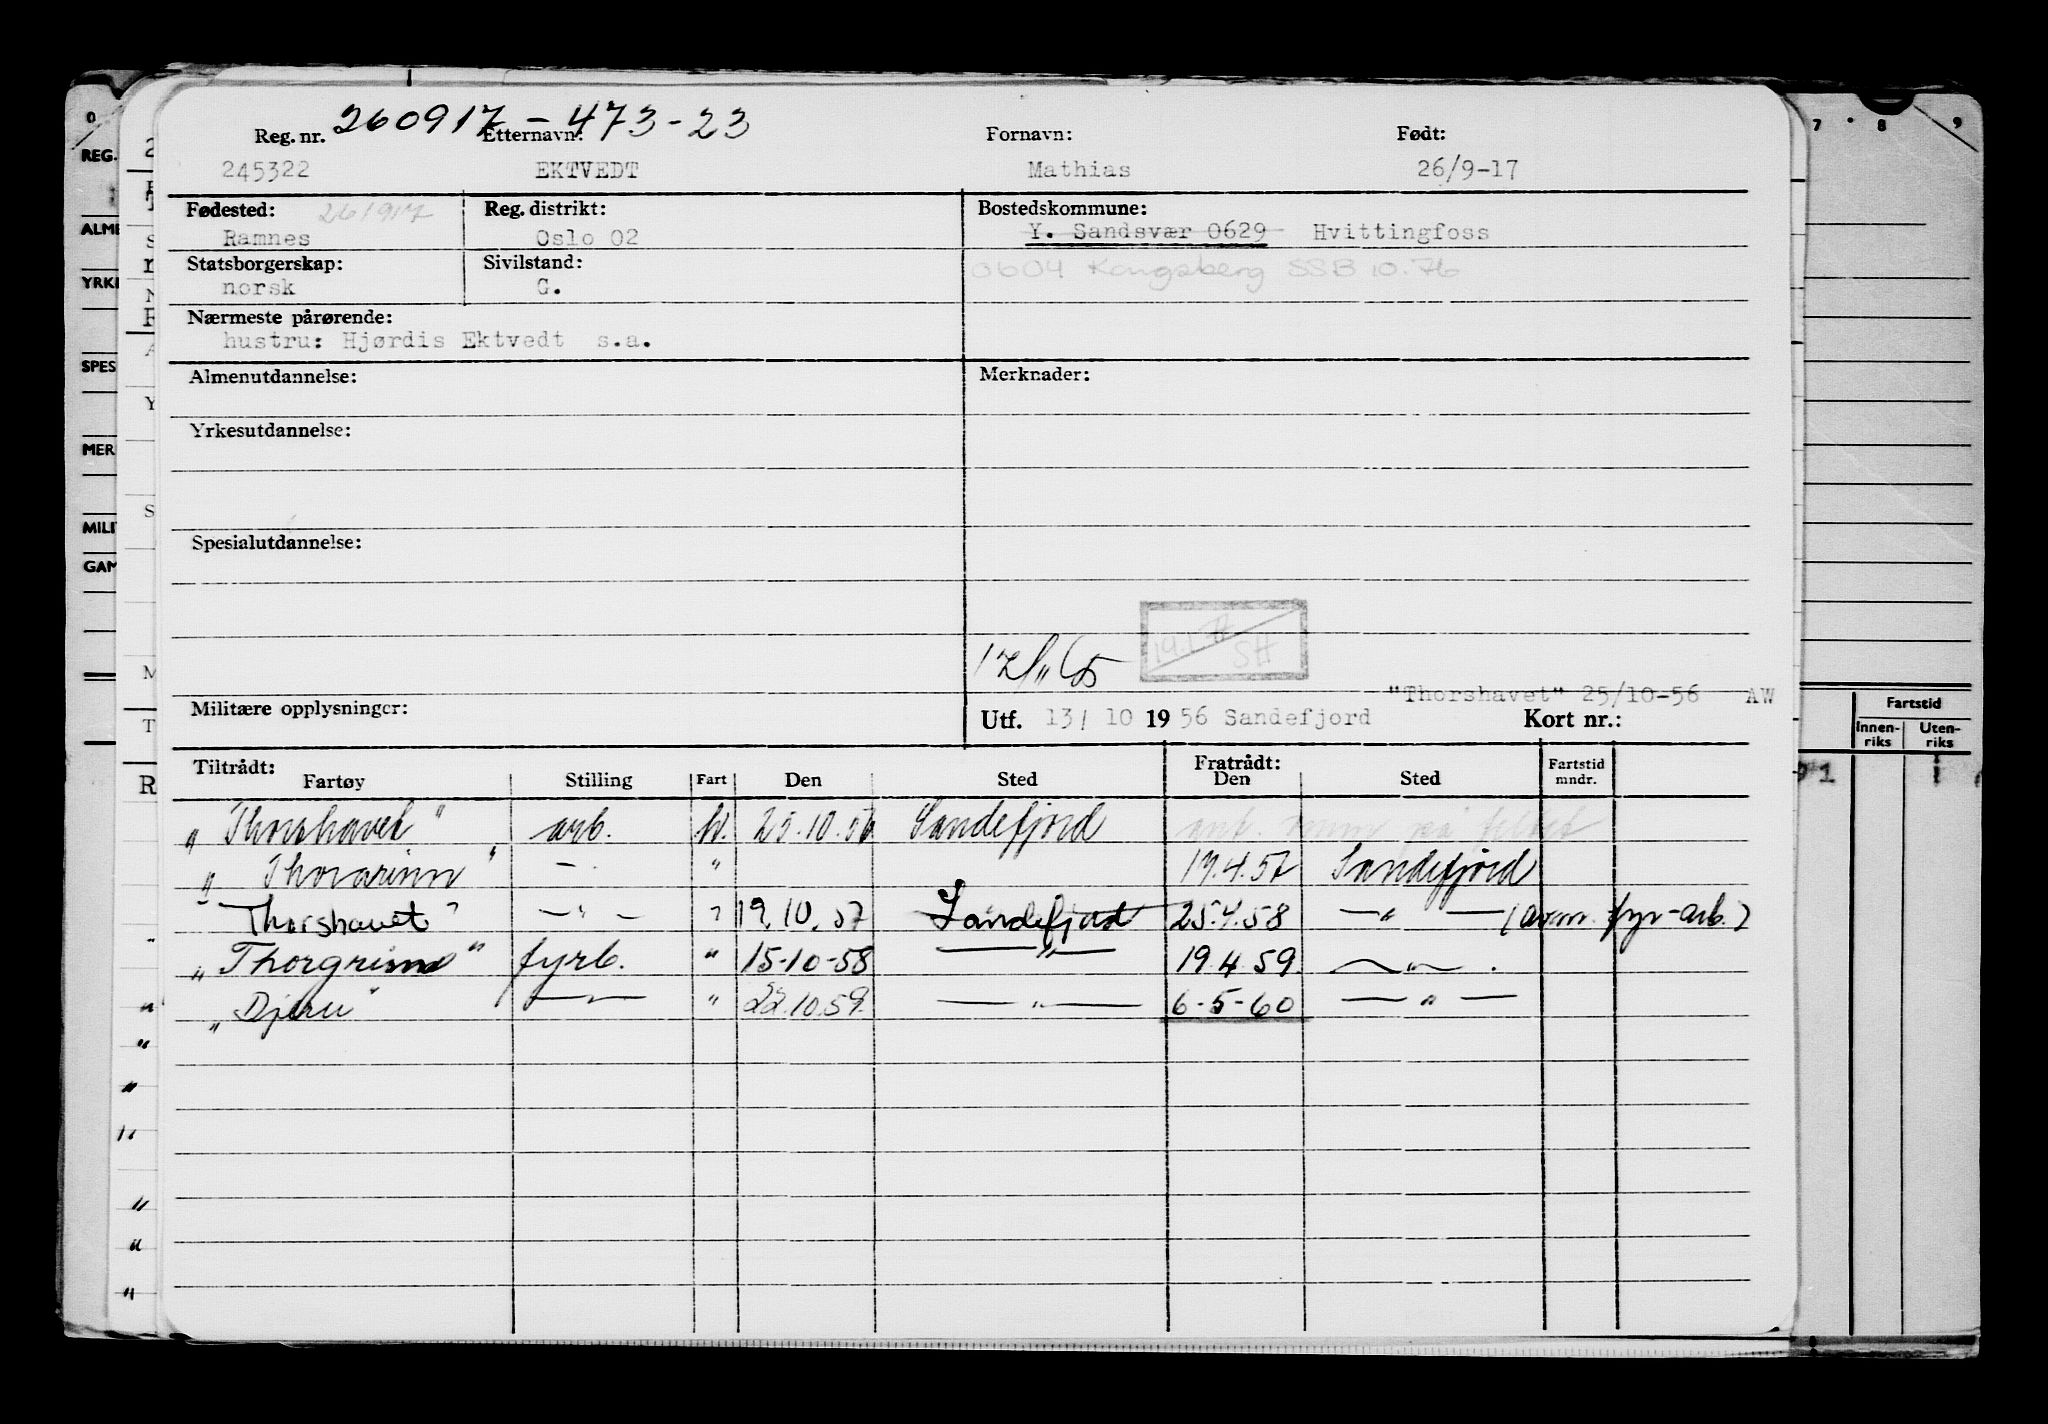 260917-473-23
Reg. nr. Etternavn: Fornavn: Født:
245322 EKTVEDT Mathias 26/9-17
Fødested: 261917 Reg. distrikt: Bostedskommune:
Ramnes Oslo 02 Y. Sandsvær 0629 Hvittingfoss
Statsborgerskap: Sivilstand: 0604 Kongsberg SSB 10.76
norsk G.
Nærmeste pårørende:
hustru: Hjørdis Ektvedt s.a.
Almenutdannelse: Merknader:
Yrkesutdannelse:
Spesialutdannelse:
SH
"Thorshavet" 25/10-56 AW
Militære opplysninger: Utf. 13/ 10 1956 Sandefjord Kort nr.:
Tiltrådt: Fratrådt:
Fartøy Stilling Fart Den Sted Den Sted Fartstid mndr.
"Thorshavet" arb. h. 25.10.56 Sandefjord
"Thorarinn" - " 17.4.57 Sandefjord
"Thorshavet" —"— " 19.10.57 Sandefjord 25.4.58 —"— (avm. fyr-arb.)
"Thorgrimm" fyrb. " 15-10-58 —"— 19.4.59 —"—
"Djerv" —"— " 22.10.59 —"— 6-5-60 —"—
0 7 8 9
REG.
ALME
YRKE
SPES
MER
MILI
GAM
Fartstid
Innen-riks Uten-riks